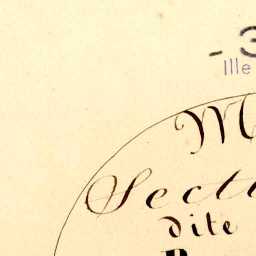 - 3
Ille
M
Secti
dite